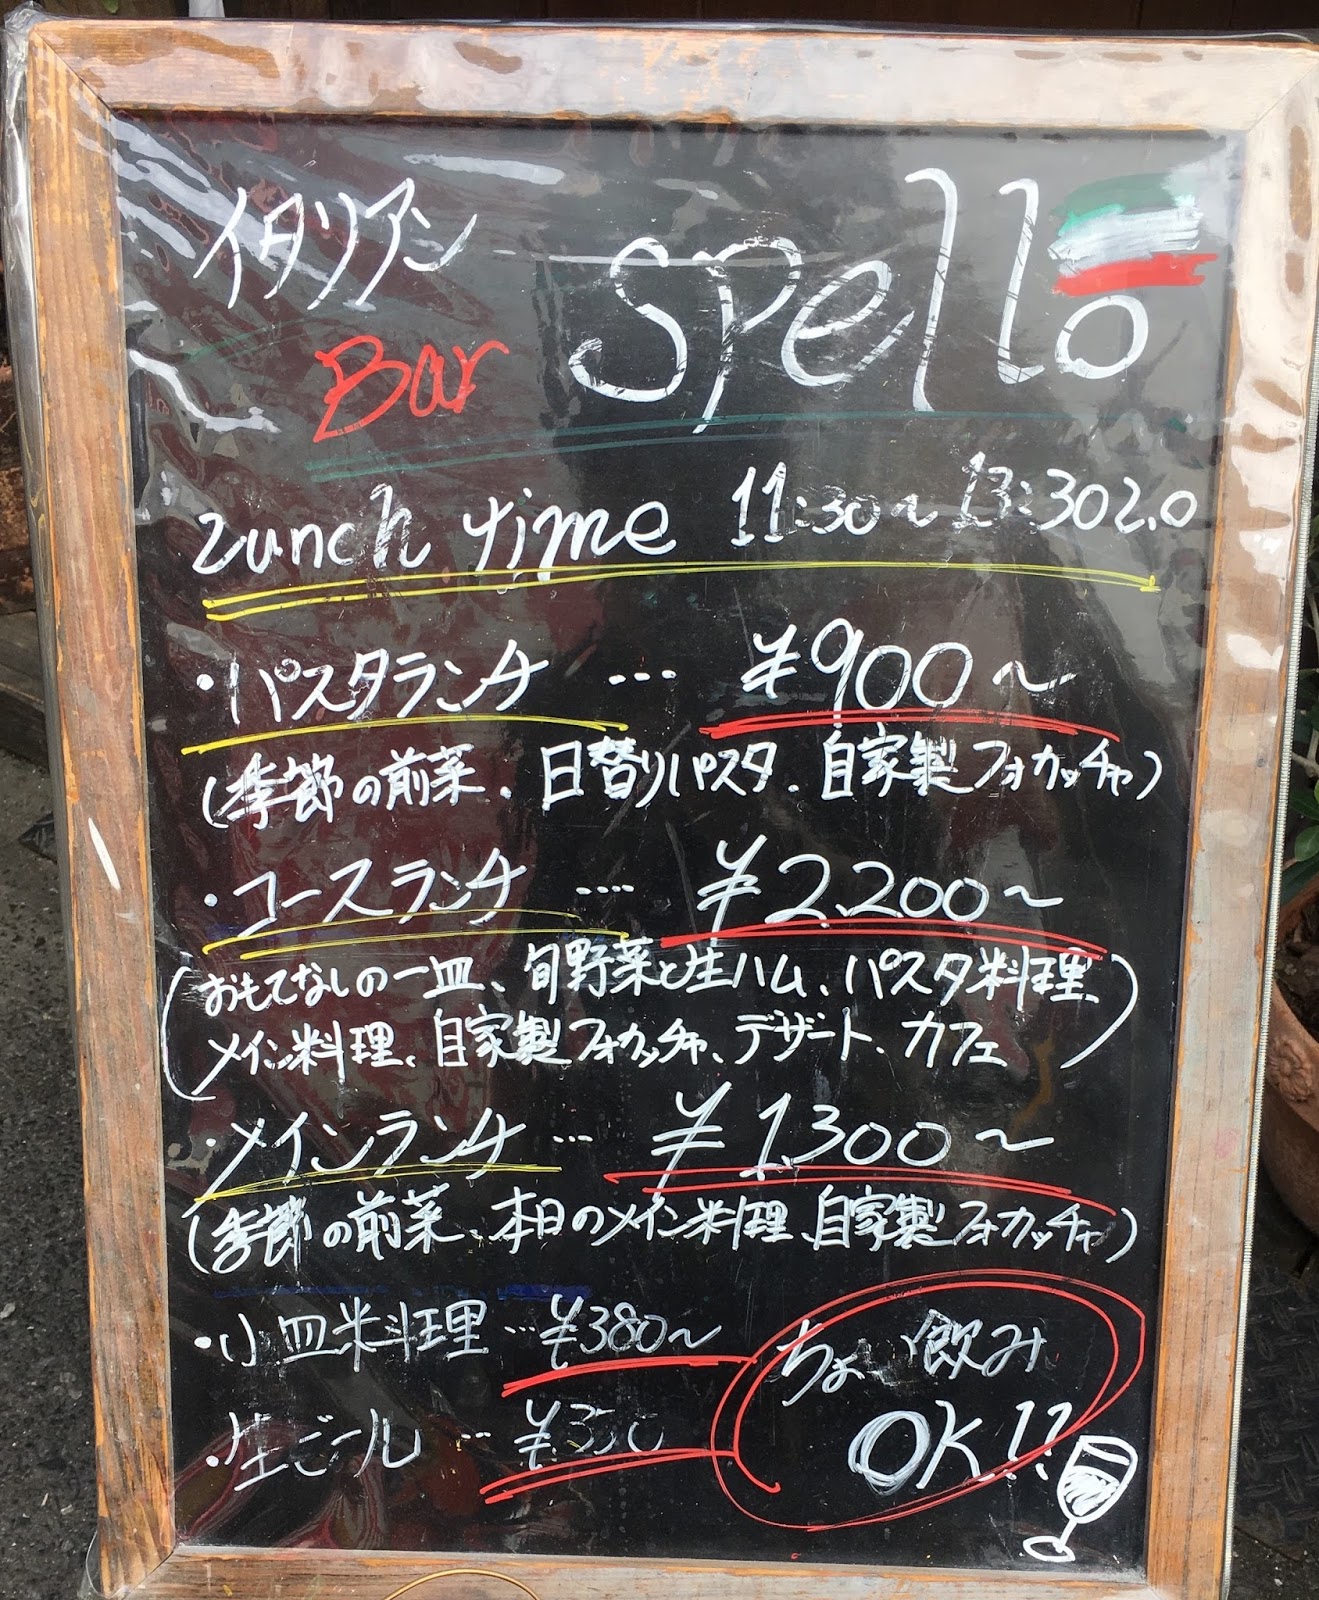 イタリアン
Bar spello
Lunch time 11:30〜13:30 L.O
・パスタランチ … ¥900〜
(季節の前菜、日替りパスタ、自家製フォカッチャ)
・コースランチ …. ¥2,200〜
(おもてなしの一皿、旬野菜と生ハム、パスタ料理、
メイン料理、自家製フォカッチャ、デザート、カフェ)
・メインランチ … ¥1,300〜
(季節の前菜、本日のメイン料理、自家製フォカッチャ)
・小皿料理 … ¥380〜
・生ビール …
ちょい飲み
OK!!